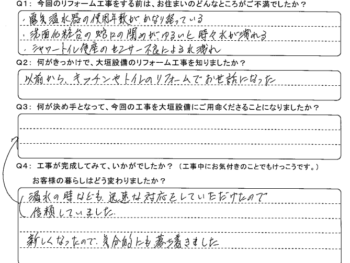 Q1: 今回のリフォーム工事をする前は、お住まいのどんなところがご不満でしたか？
・電気温水器の使用年数がかなり経っている
・洗面化粧台の蛇口の閉めがゆるいと時々水が漏れる
・シャワートイレ便座のセンサー不良による水漏れ
Q2: 何がきっかけで、大垣設備のリフォーム工事を知りましたか？
以前から、キッチンやトイレのリフォームでお世話になった
Q3: 何が決め手となって、今回の工事を大垣設備にご用命くださることになりましたか？
Q4: 工事が完成してみて、いかがでしたか？（工事中にお気付きのことでもけっこうです。）
お客様の暮らしはどう変わりましたか？
漏水の時なども迅速な対応をしていただけたので
信頼していました
新しくなったので、気分的にも落ち着きました